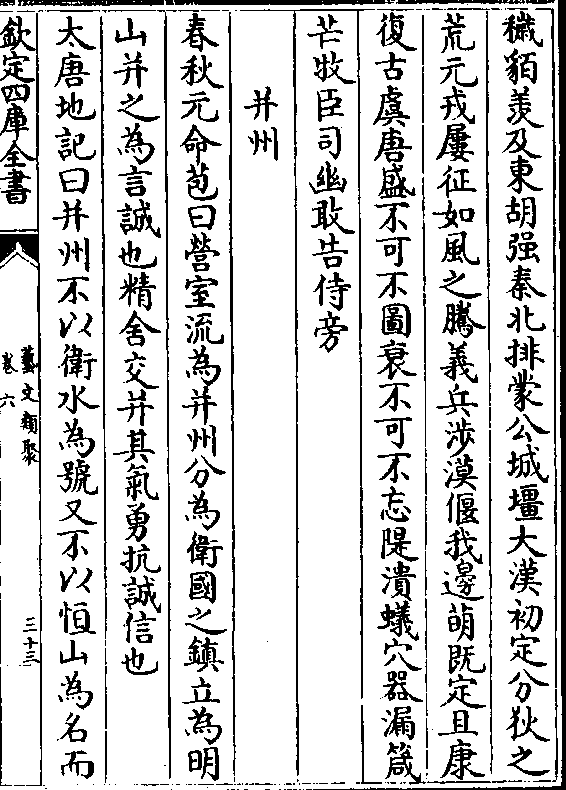 穢貊羨及東胡强秦北排蒙公城壃大漢初定分狄之
荒元戎屢征如風之騰義兵涉漠偃我邊萌既定且康
復古虞唐盛不可不圖衰不可不忘隄潰蟻穴器漏箴
芒牧臣司幽敢告侍旁
并州
春秋元命苞曰營室流為并州分為衛國之鎮立為明
山并之為言誠也精舍交并其氣勇抗誠信也
太唐地記曰并州不以衛水為號又不以恒山為名而
欽定四庫全書
藝文類聚
卷六
三十三